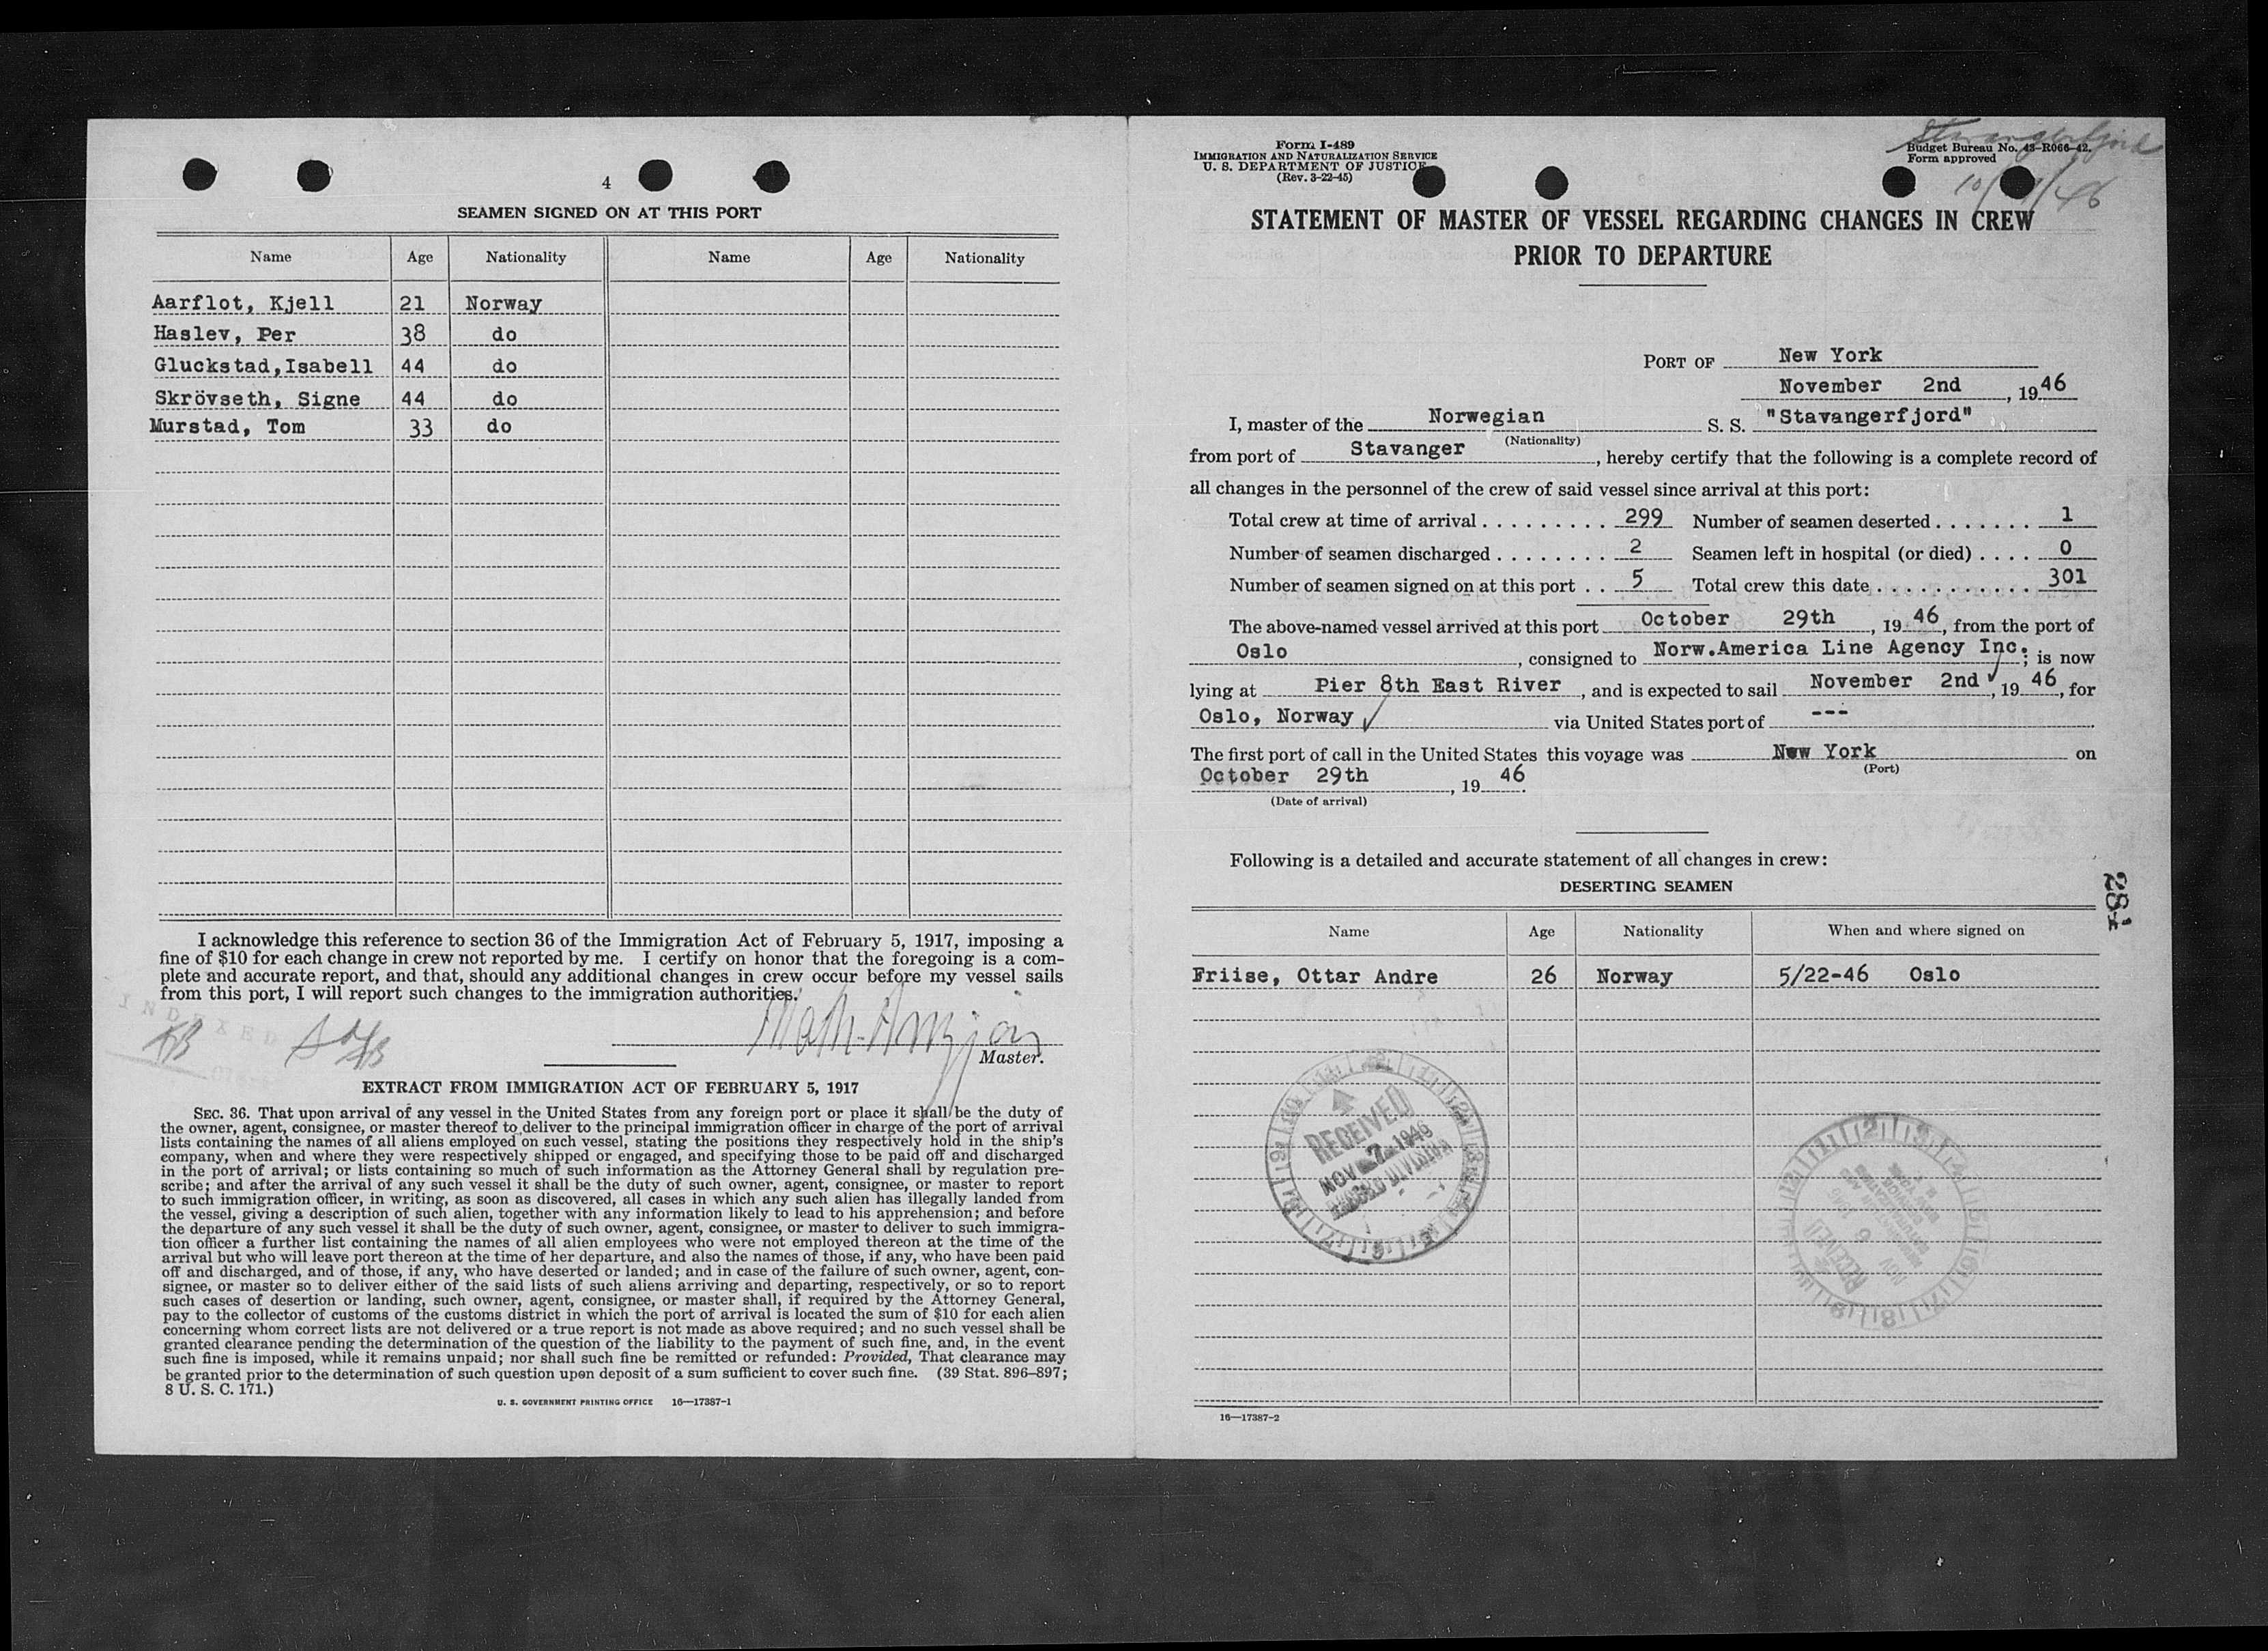 4
SEAMEN SIGNED ON AT THIS PORT
Name Age Nationality Name Age Nationality
Aarflot, Kjell 21 Norway
Haslev, Per 38 do
Gluckstad, Isabell 44 do
Skrövseth, Signe 44 do
Murstad, Tom 33 do
I acknowledge this reference to section 36 of the Immigration Act of February 5, 1917, imposing a
fine of $10 for each change in crew not reported by me. I certify on honor that the foregoing is a com-
plete and accurate report, and that, should any additional changes in crew occur before my vessel sails
from this port, I will report such changes to the immigration authorities.
INDEXED
Master.
EXTRACT FROM IMMIGRATION ACT OF FEBRUARY 5, 1917
SEC. 36. That upon arrival of any vessel in the United States from any foreign port or place it shall be the duty of
the owner, agent, consignee, or master thereof to deliver to the principal immigration officer in charge of the port of arrival
lists containing the names of all aliens employed on such vessel, stating the positions they respectively hold in the ship's
company, when and where they were respectively shipped or engaged, and specifying those to be paid off and discharged
in the port of arrival; or lists containing so much of such information as the Attorney General shall by regulation pre-
scribe; and after the arrival of any such vessel it shall be the duty of such owner, agent, consignee, or master to report
to such immigration officer, in writing, as soon as discovered, all cases in which any such alien has illegally landed from
the vessel, giving a description of such alien, together with any information likely to lead to his apprehension; and before
the departure of any such vessel it shall be the duty of such owner, agent, consignee, or master to deliver to such immigra-
tion officer a further list containing the names of all alien employees who were not employed thereon at the time of the
arrival but who will leave port thereon at the time of her departure, and also the names of those, if any, who have been paid
off and discharged, and of those, if any, who have deserted or landed; and in case of the failure of such owner, agent, con-
signee, or master so to deliver either of the said lists of such aliens arriving and departing, respectively, or so to report
such cases of desertion or landing, such owner, agent, consignee, or master shall, if required by the Attorney General,
pay to the collector of customs of the customs district in which the port of arrival is located the sum of $10 for each alien
concerning whom correct lists are not delivered or a true report is not made as above required; and no such vessel shall be
granted clearance pending the determination of the question of the liability to the payment of such fine, and, in the event
such fine is imposed, while it remains unpaid; nor shall such fine be remitted or refunded: Provided, That clearance may
be granted prior to the determination of such question upon deposit of a sum sufficient to cover such fine. (39 Stat. 896–897;
8 U. S. C. 171.)
U. S. GOVERNMENT PRINTING OFFICE 16—17387-1
Form I-489
IMMIGRATION AND NATURALIZATION SERVICE
U. S. DEPARTMENT OF JUSTICE
(Rev. 3-22-45)
Stavangerfjord
Budget Bureau No. 43-R066-42.
Form approved
STATEMENT OF MASTER OF VESSEL REGARDING CHANGES IN CREW
PRIOR TO DEPARTURE
PORT OF New York
November 2nd, 1946
I, master of the Norwegian S. S. "Stavangerfjord"
(Nationality)
from port of Stavanger, hereby certify that the following is a complete record of
all changes in the personnel of the crew of said vessel since arrival at this port:
Total crew at time of arrival . . . . . . . . . 299 Number of seamen deserted . . . . . . . 1
Number of seamen discharged . . . . . . . . 2 Seamen left in hospital (or died) . . . . 0
Number of seamen signed on at this port . . 5 Total crew this date . . . . . . . . . . . 301
The above-named vessel arrived at this port October 29th, 1946, from the port of
Oslo, consigned to Norw.America Line Agency Inc.; is now
lying at Pier 8th East River, and is expected to sail November 2nd, 1946, for
Oslo, Norway via United States port of ---
The first port of call in the United States this voyage was New York on
(Port)
October 29th, 1946.
(Date of arrival)
Following is a detailed and accurate statement of all changes in crew:
DESERTING SEAMEN
284
Name Age Nationality When and where signed on
Friise, Ottar Andre 26 Norway 5/22-46 Oslo
RECEIVED
NOV 7 1946
RECORD DIVISION
RECEIVED
NOV 6 1946
16—17387-2